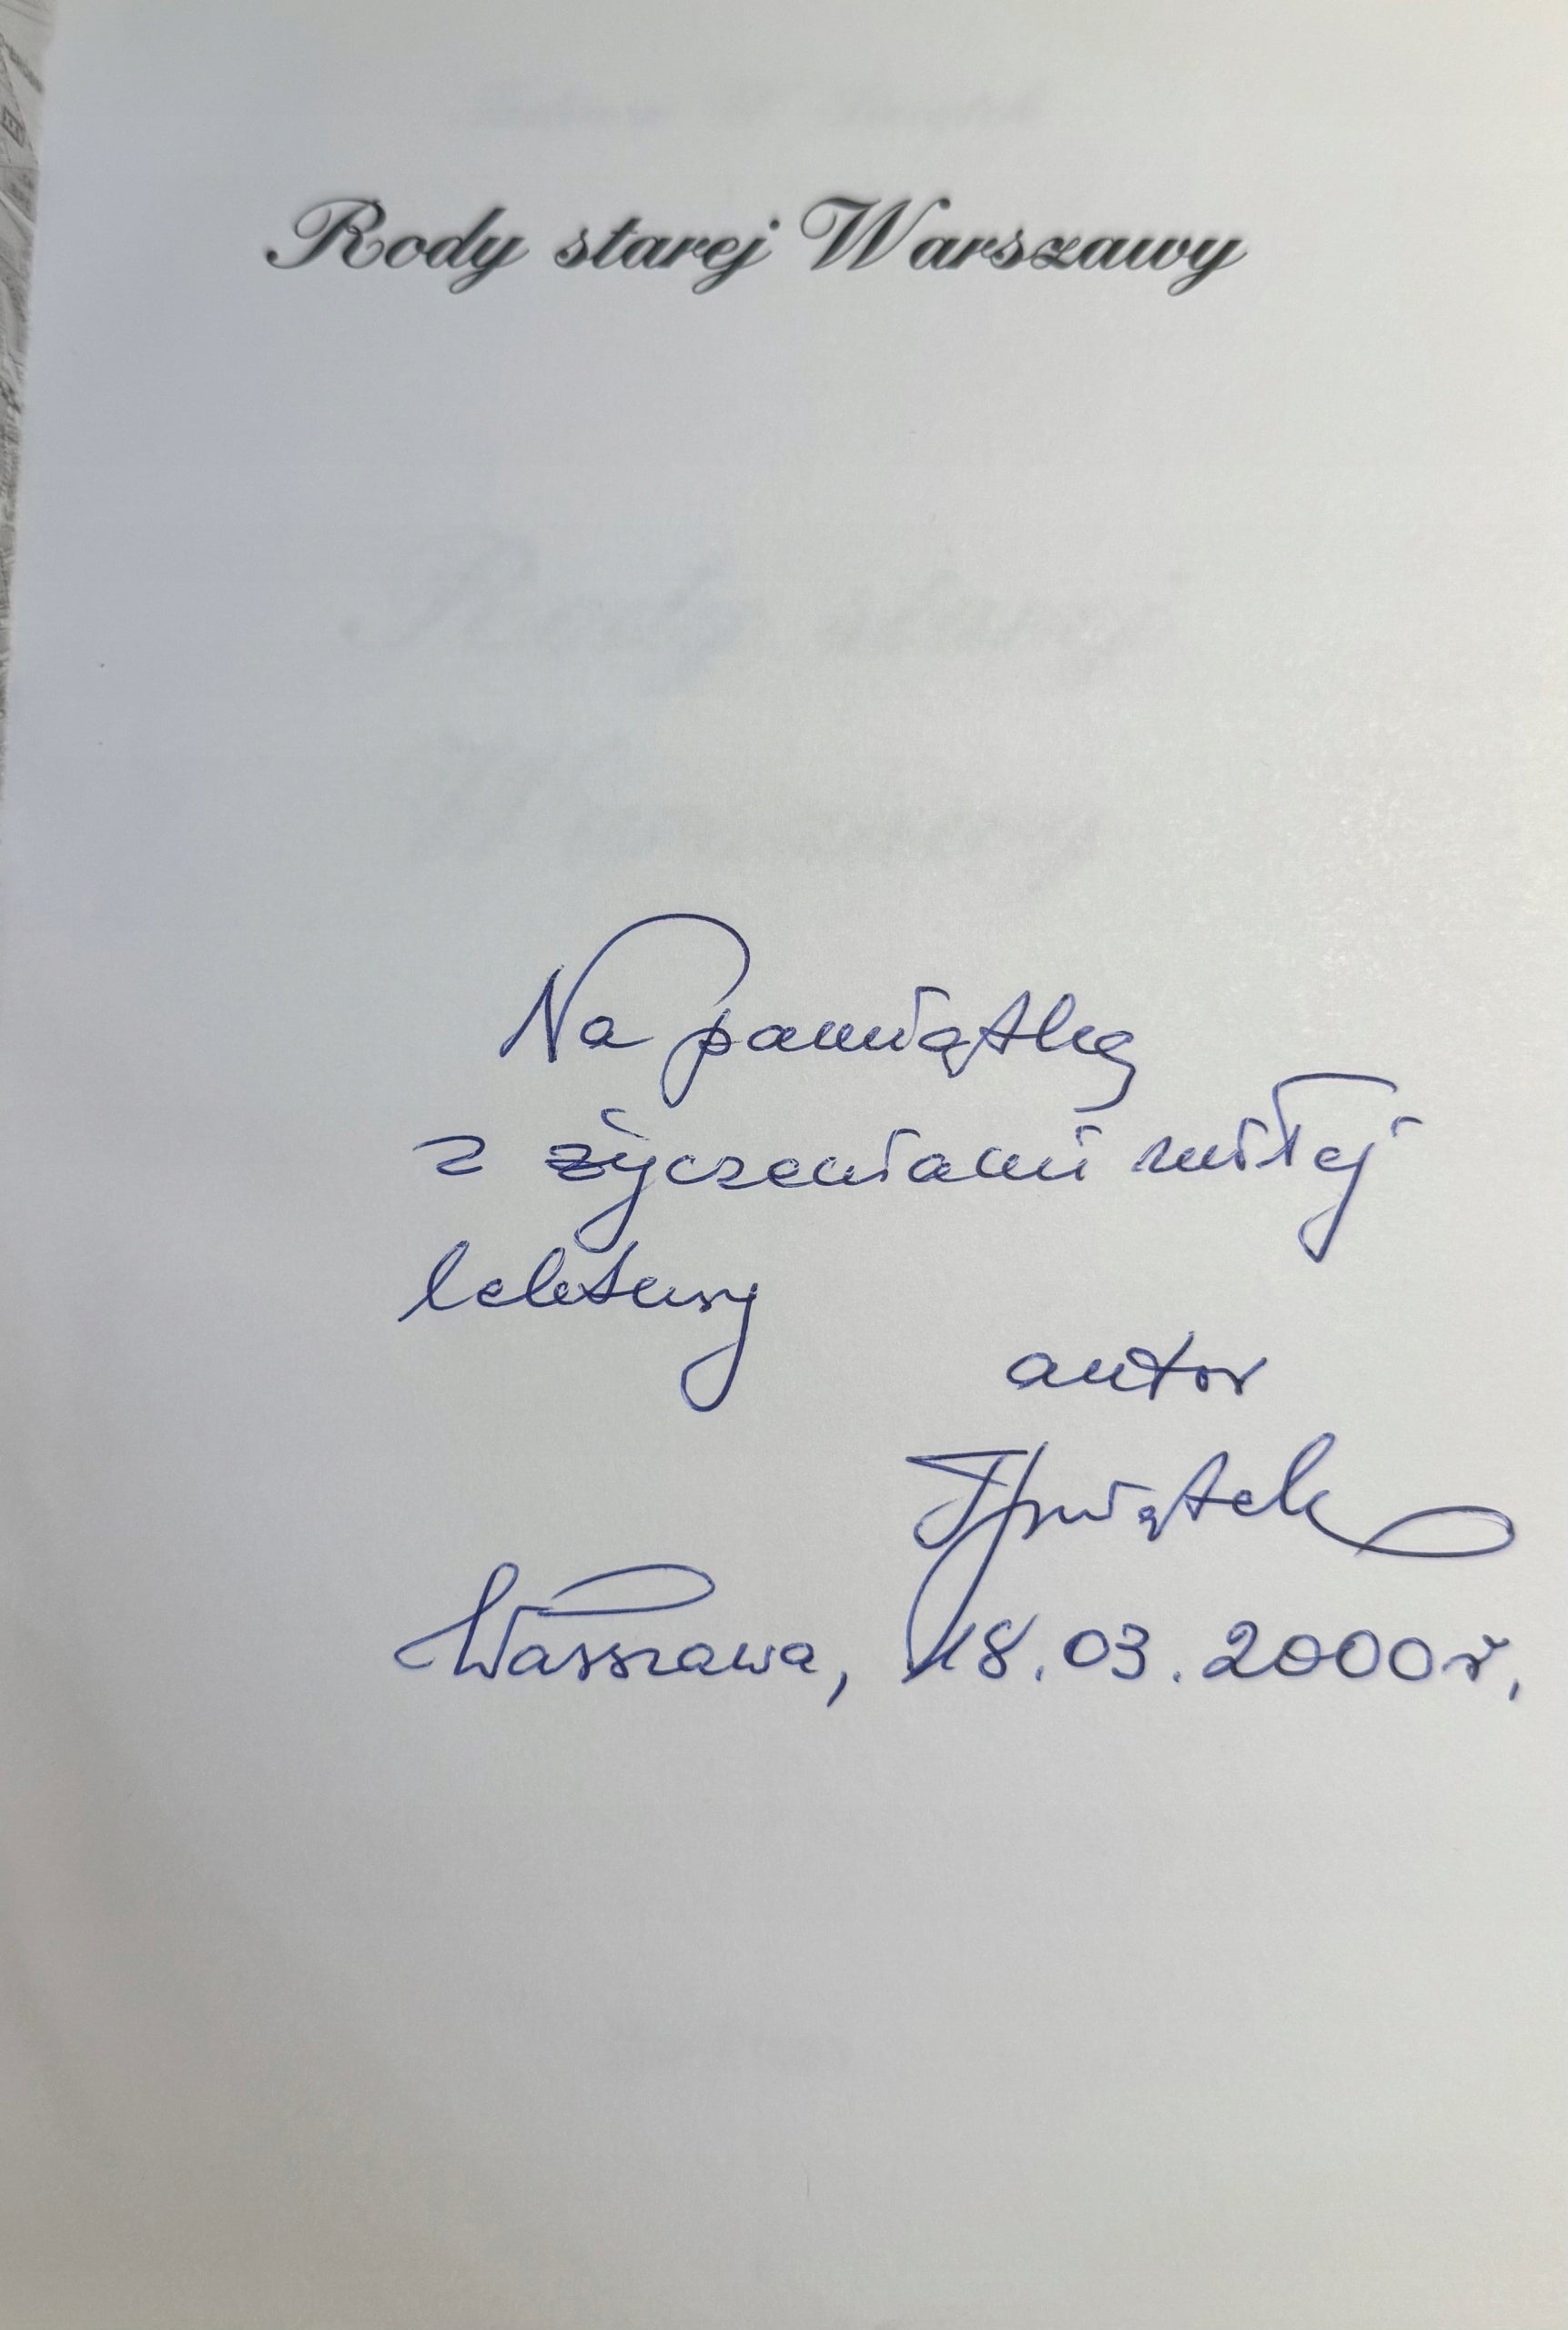 Rody starej Warszawy
Na pamiątkę
z życzeniami miłej
lektury
autor
TŚwiątek
Warszawa, 18.03.2000r.